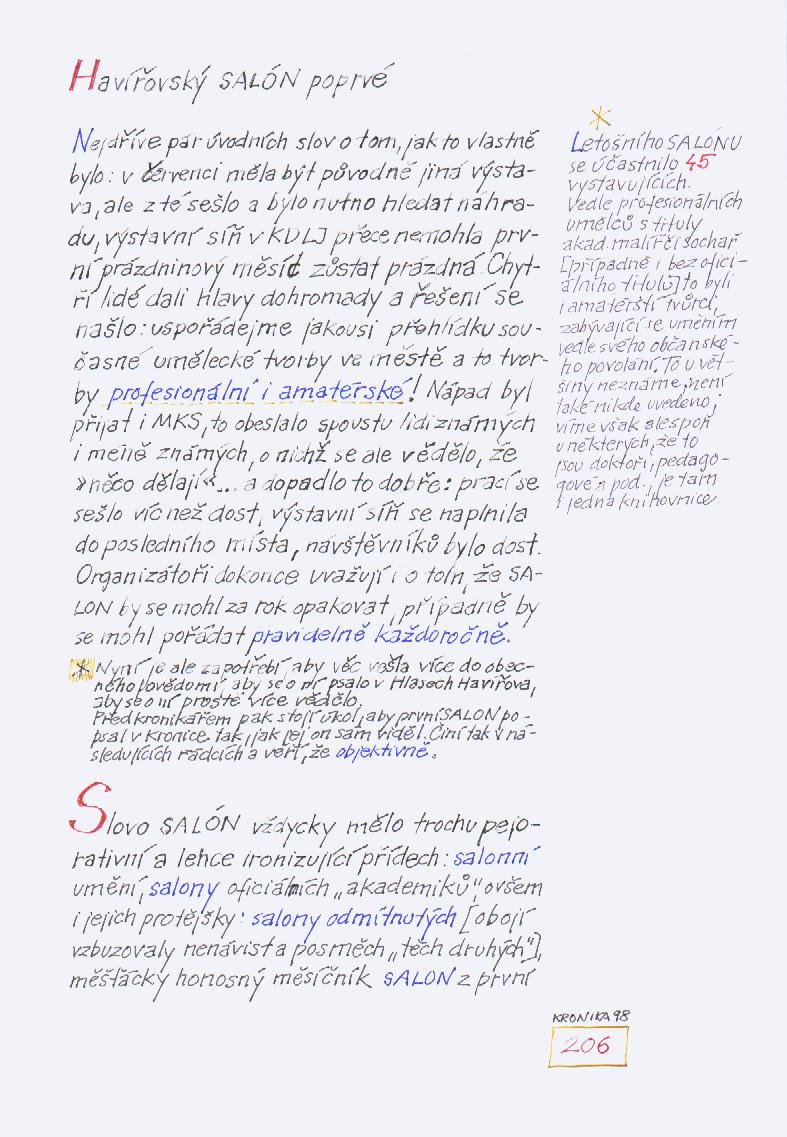 Havířovský SALÓN poprvé
Nejdříve pár úvodních slov o tom, jak to vlastně
bylo: v červenci měla být původně jiná výsta-
va, ale z té sešlo a bylo nutno hledat náhra-
du, výstavní síň v KDLJ přece nemohla prv-
ní prázdninový měsíc zůstat prázdná. Chyt-
ří lidé dali hlavy dohromady a řešení se
našlo: uspořádejme jakousi přehlídku sou-
časné umělecké tvorby ve městě a to tvor-
by profesionální i amatérské! Nápad byl
přijat i MKS, to obeslalo spoustu lidí známých
i méně známých, o nichž se ale vědělo, že
»něco dělají«... a dopadlo to dobře: prací se
sešlo víc než dost, výstavní síň se naplnila
do posledního místa, návštěvníků bylo dost.
Organizátoři dokonce uvažují i o tom, že SA-
LON by se mohl za rok opakovat, případně by
se mohl pořádat pravidelně každoročně.
* Nyní je ale zapotřebí, aby věc vešla více do obec-
ného povědomí, aby se o ní psalo v Hlasech Havířova,
aby se o ní prostě více vědělo.
Před kronikářem pak stojí úkol, aby první SALON po-
psal v kronice tak, jak jej on sám viděl. Činí tak v ná-
sledujících řádcích a věří, že objektivně.
Slovo SALÓN vždycky mělo trochu pejo-
rativní a lehce ironizující přídech: salonní
umění, salony oficiálních „akademiků", ovšem
i jejich protějšky: salony odmítnutých [obojí
vzbuzovaly nenávist a posměch „těch druhých"],
měšťácky honosný měsíčník SALON z první
*
Letošního SALÓNU
se účastnilo 45
vystavujících.
Vedle profesionálních
umělců s tituly
akad. malíř či sochař
[případně i bez ofici-
álního titulu] to byli
i amatérští tvůrci,
zabývající se uměním
vedle svého občanské-
ho povolání. To u vět-
šiny neznáme, není
také nikde uvedeno;
víme však alespoň
u některých, že to
jsou doktoři, pedago-
gové a pod., je tam
i jedna knihovnice
KRONIKA 98
206